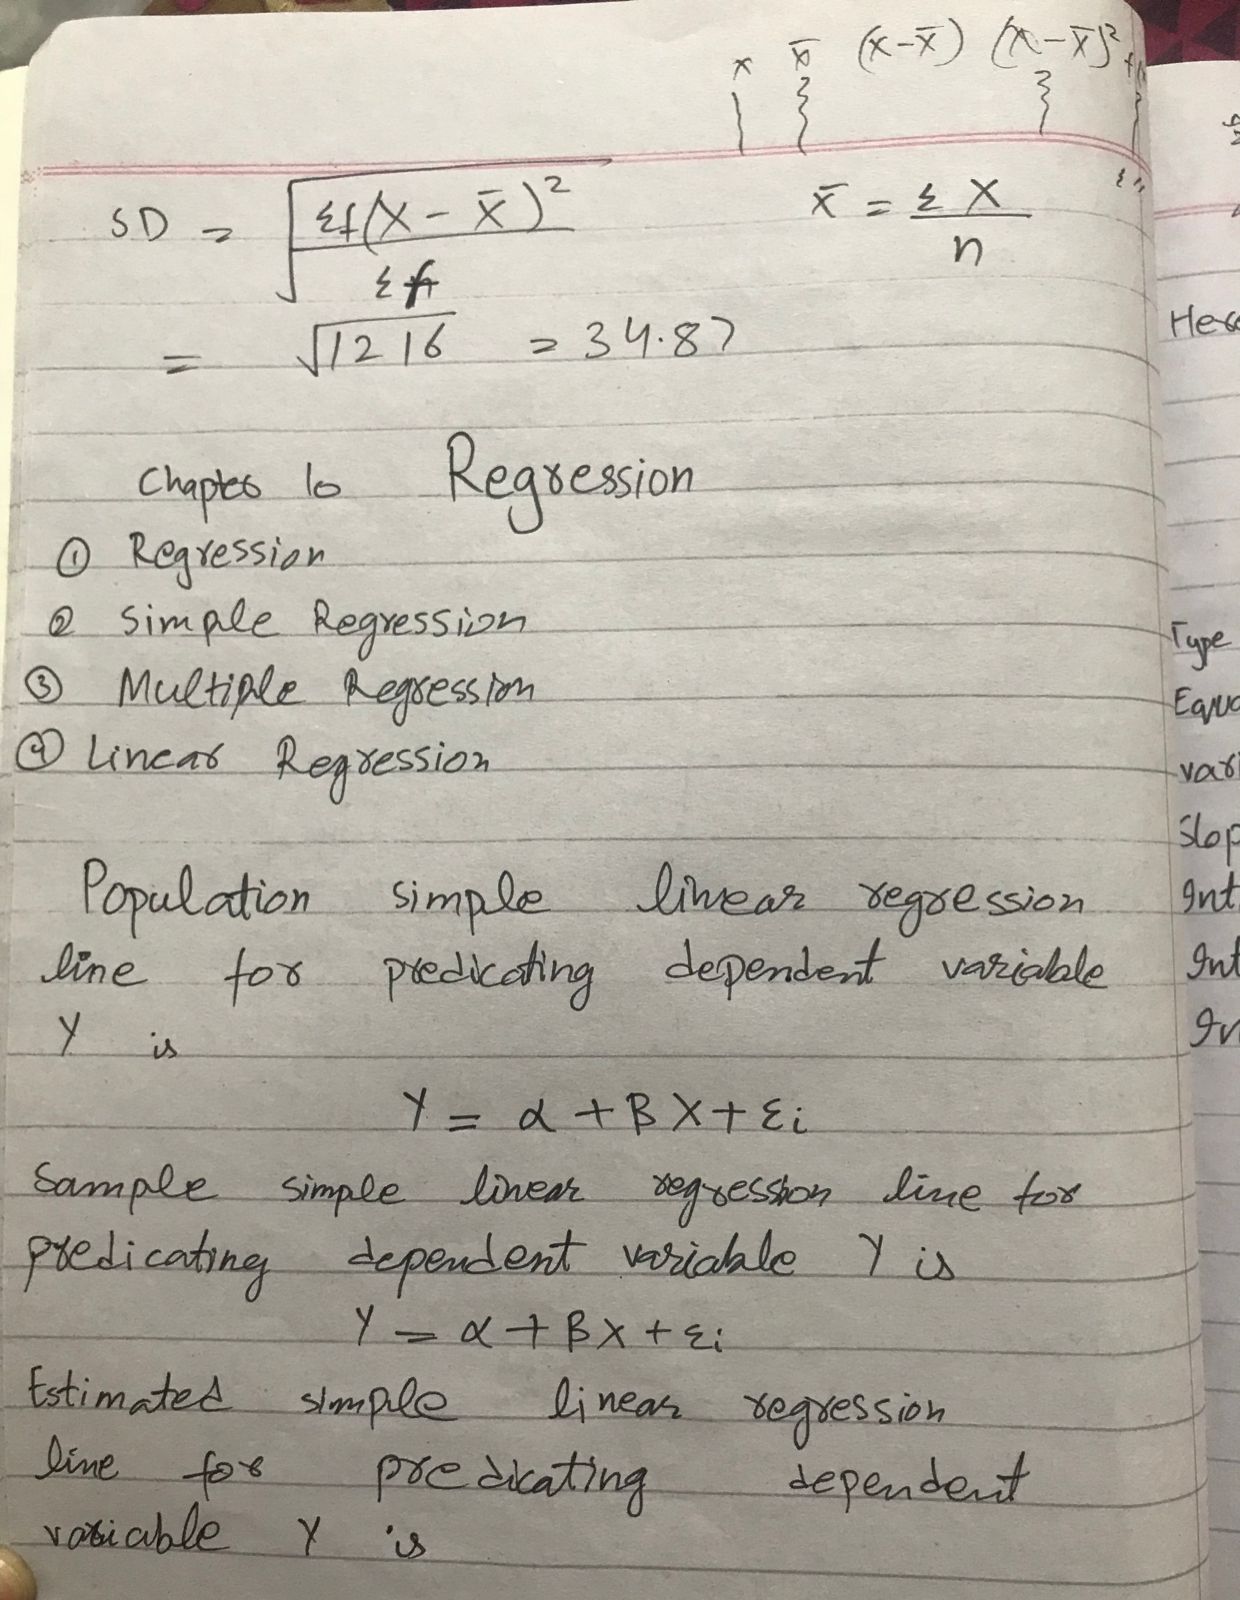 x x̄ (x-x̄) (x-x̄)²
SD = √(Σf(X - x̄)² / Σf)
x̄ = ΣX / n
= √1216 = 34.87
Chapter 10 Regression
① Regression
② Simple Regression
③ Multiple Regression
④ Linear Regression
Population simple linear regression
line for predicating dependent variable
Y is
Y = α + βX + εi
Sample simple linear regression line for
predicating dependent variable Y is
Y = α + βX + εi
Estimated simple linear regression
line for predicating dependent
variable Y is
Type
Slop
Int
Int